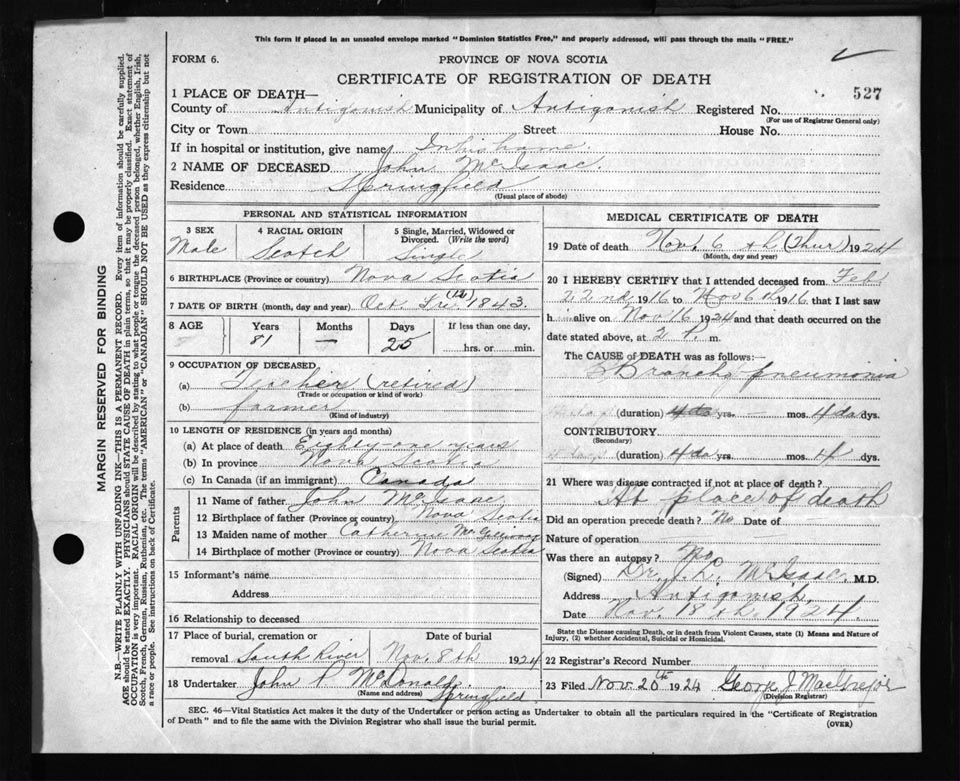 This form if placed in an unsealed envelope marked "Dominion Statistics Free," and properly addressed, will pass through the mails "FREE."
FORM 6.
PROVINCE OF NOVA SCOTIA
CERTIFICATE OF REGISTRATION OF DEATH
527
1 PLACE OF DEATH—
County of Antigonish Municipality of Antigonish Registered No.
(For use of Registrar General only)
City or Town Street House No.
If in hospital or institution, give name In his home
2 NAME OF DECEASED John McIsaac
Residence Springfield
(Usual place of abode)
PERSONAL AND STATISTICAL INFORMATION
3 SEX 4 RACIAL ORIGIN 5 Single, Married, Widowed or Divorced. (Write the word)
Male Scotch Single
6 BIRTHPLACE (Province or country) Nova Scotia
7 DATE OF BIRTH (month, day and year) Oct. Fri. (12) 1843.
8 AGE Years Months Days If less than one day,
81 — 25 hrs. or min.
9 OCCUPATION OF DECEASED
(a) Teacher (retired)
(Trade or occupation or kind of work)
(b) farmer
(Kind of industry)
10 LENGTH OF RESIDENCE (in years and months)
(a) At place of death Eighty-one years
(b) In province Nova Scotia
(c) In Canada (if an immigrant) Canada
Parents
11 Name of father John McIsaac
12 Birthplace of father (Province or country) Nova Scotia
13 Maiden name of mother Catherine McGillivray
14 Birthplace of mother (Province or country) Nova Scotia
15 Informant's name
Address
16 Relationship to deceased
17 Place of burial, cremation or removal South River
Date of burial Nov. 8th 1924
18 Undertaker John P McDonald
(Name and address) Springfield
MEDICAL CERTIFICATE OF DEATH
19 Date of death Nov. 6th (Thur) 1924
(Month, day and year)
20 I HEREBY CERTIFY that I attended deceased from Feb
22nd 1916 to Nov 6th 1916 that I last saw
h alive on Nov 16 1924 and that death occurred on the
date stated above, at 2 P. m.
The CAUSE of DEATH was as follows:—
Broncho pneumonia
(duration) yrs. — mos. 4 da dys.
CONTRIBUTORY
(Secondary)
(duration) 4 da yrs. mos. 4 dys.
21 Where was disease contracted if not at place of death?
At place of death
Did an operation precede death? No Date of
Nature of operation
Was there an autopsy? No
(Signed) Dr. J. L. McIsaac M.D.
Address Antigonish
Date Nov. 18th, 1924.
State the Disease causing Death, or in death from Violent Causes, state (1) Means and Nature of Injury, (2) whether Accidental, Suicidal or Homicidal.
22 Registrar's Record Number
23 Filed Nov. 20th 1924 George J MacGregor
(Division Registrar)
SEC. 46—Vital Statistics Act makes it the duty of the Undertaker or person acting as Undertaker to obtain all the particulars required in the "Certificate of Registration
of Death" and to file the same with the Division Registrar who shall issue the burial permit.
(OVER)
MARGIN RESERVED FOR BINDING
N.B.—WRITE PLAINLY WITH UNFADING INK—THIS IS A PERMANENT RECORD. Every item of information should be carefully supplied.
AGE should be stated EXACTLY. PHYSICIANS should STATE CAUSE OF DEATH in plain terms, so that it may be properly classified. Exact statement of
OCCUPATION is very important. RACIAL ORIGIN will be described by stating to what people or tongue the deceased person belonged, whether English, Irish,
Scotch, French, German, Russian, Ruthenian, etc. The terms "AMERICAN" or "CANADIAN" SHOULD NOT BE USED as they express citizenship but not
a race or people. See instructions on back of Certificate.